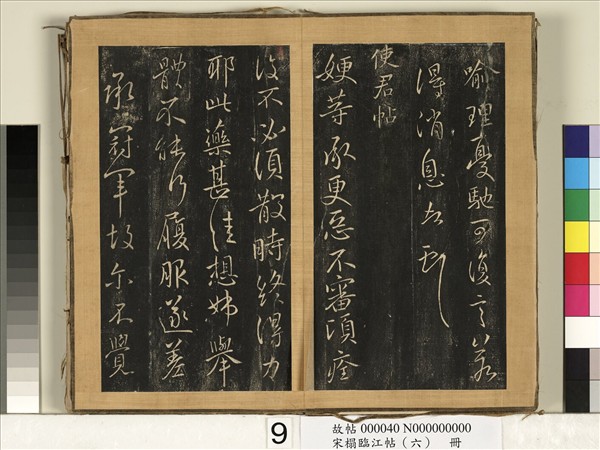 喻理憂馳可復言以若
得消息
使君帖
嫂等承更惡不審頃痊
復不必須散時終得力
耶此藥甚佳想姊舉
體不能行履服遂差
承冠軍故尔不覺
9
故帖 000040 N000000000
宋榻臨江帖（六） 冊